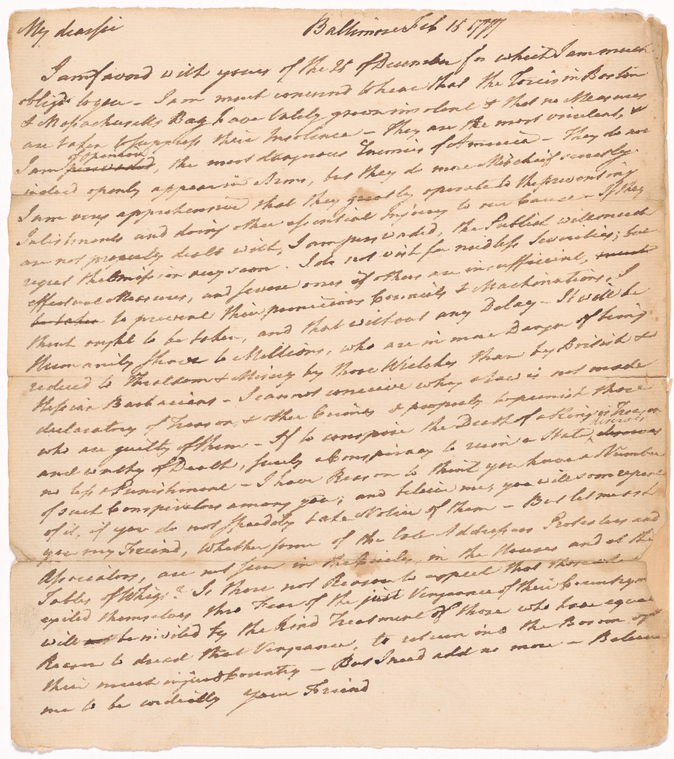 My dear sir Baltimore Feb 15 1777
I am favord with yours of the 21 of December for which I am much
obligd to you - I am much concernd to hear that the Tories in Boston
& Massachusetts Bay have lately grown insolent & that no Measures
are taken to suppress their Insolence - They are the most virulent, &
I am of opinion persuaded, the most dangerous Enemies of America - They do not
indeed openly appear in Arms, but they do more Mischief secretly.
I am very apprehensive that they greatly operate to the preventing
Inlistments and doing other essential Injury to our Cause - If they
are not properly dealt with, I am perswaded, the Publick will much
regret the omission very soon. I do not wish for needless Severities; but
effectual Measures, and severe ones if others are insufficient,
to be taken to prevent their pernicious Councils & Machinations, I
think ought to be taken, and that without any Delay - It will be
Humanity shown to Millions, who are in more Danger of being
reduced to Thraldom & Misery by those Wretches than by British &
Hessian Barbarians - I cannot conceive why a Law is not made
declaratory of Treason & other Crimes & properly to punish those
who are guilty of them - If to conspire the Death of a King is Treason
and worthy of Death, surely a Conspiracy to ruin a State deserves
no less a Punishment - I have Reason to think you have a Number
of such Conspirators among you; and believe me, you will soon repent
of it, if you do not speedily take Notice of them - But let me ask
you my Friend, whether some of the late Addressers Protesters and
Associators, are not seen in the in the Houses and at the
Tables of Whigs? Is there not Reason to expect that those who
exiled themselves thro Fear of the just Vengeance of their Countrymen
will be invited by the kind Treatment of those who have equal
Reason to dread that Vengeance, to return into the Bosom of
their much injurd Country - But I need add no more - Believe
me to be cordially your Friend